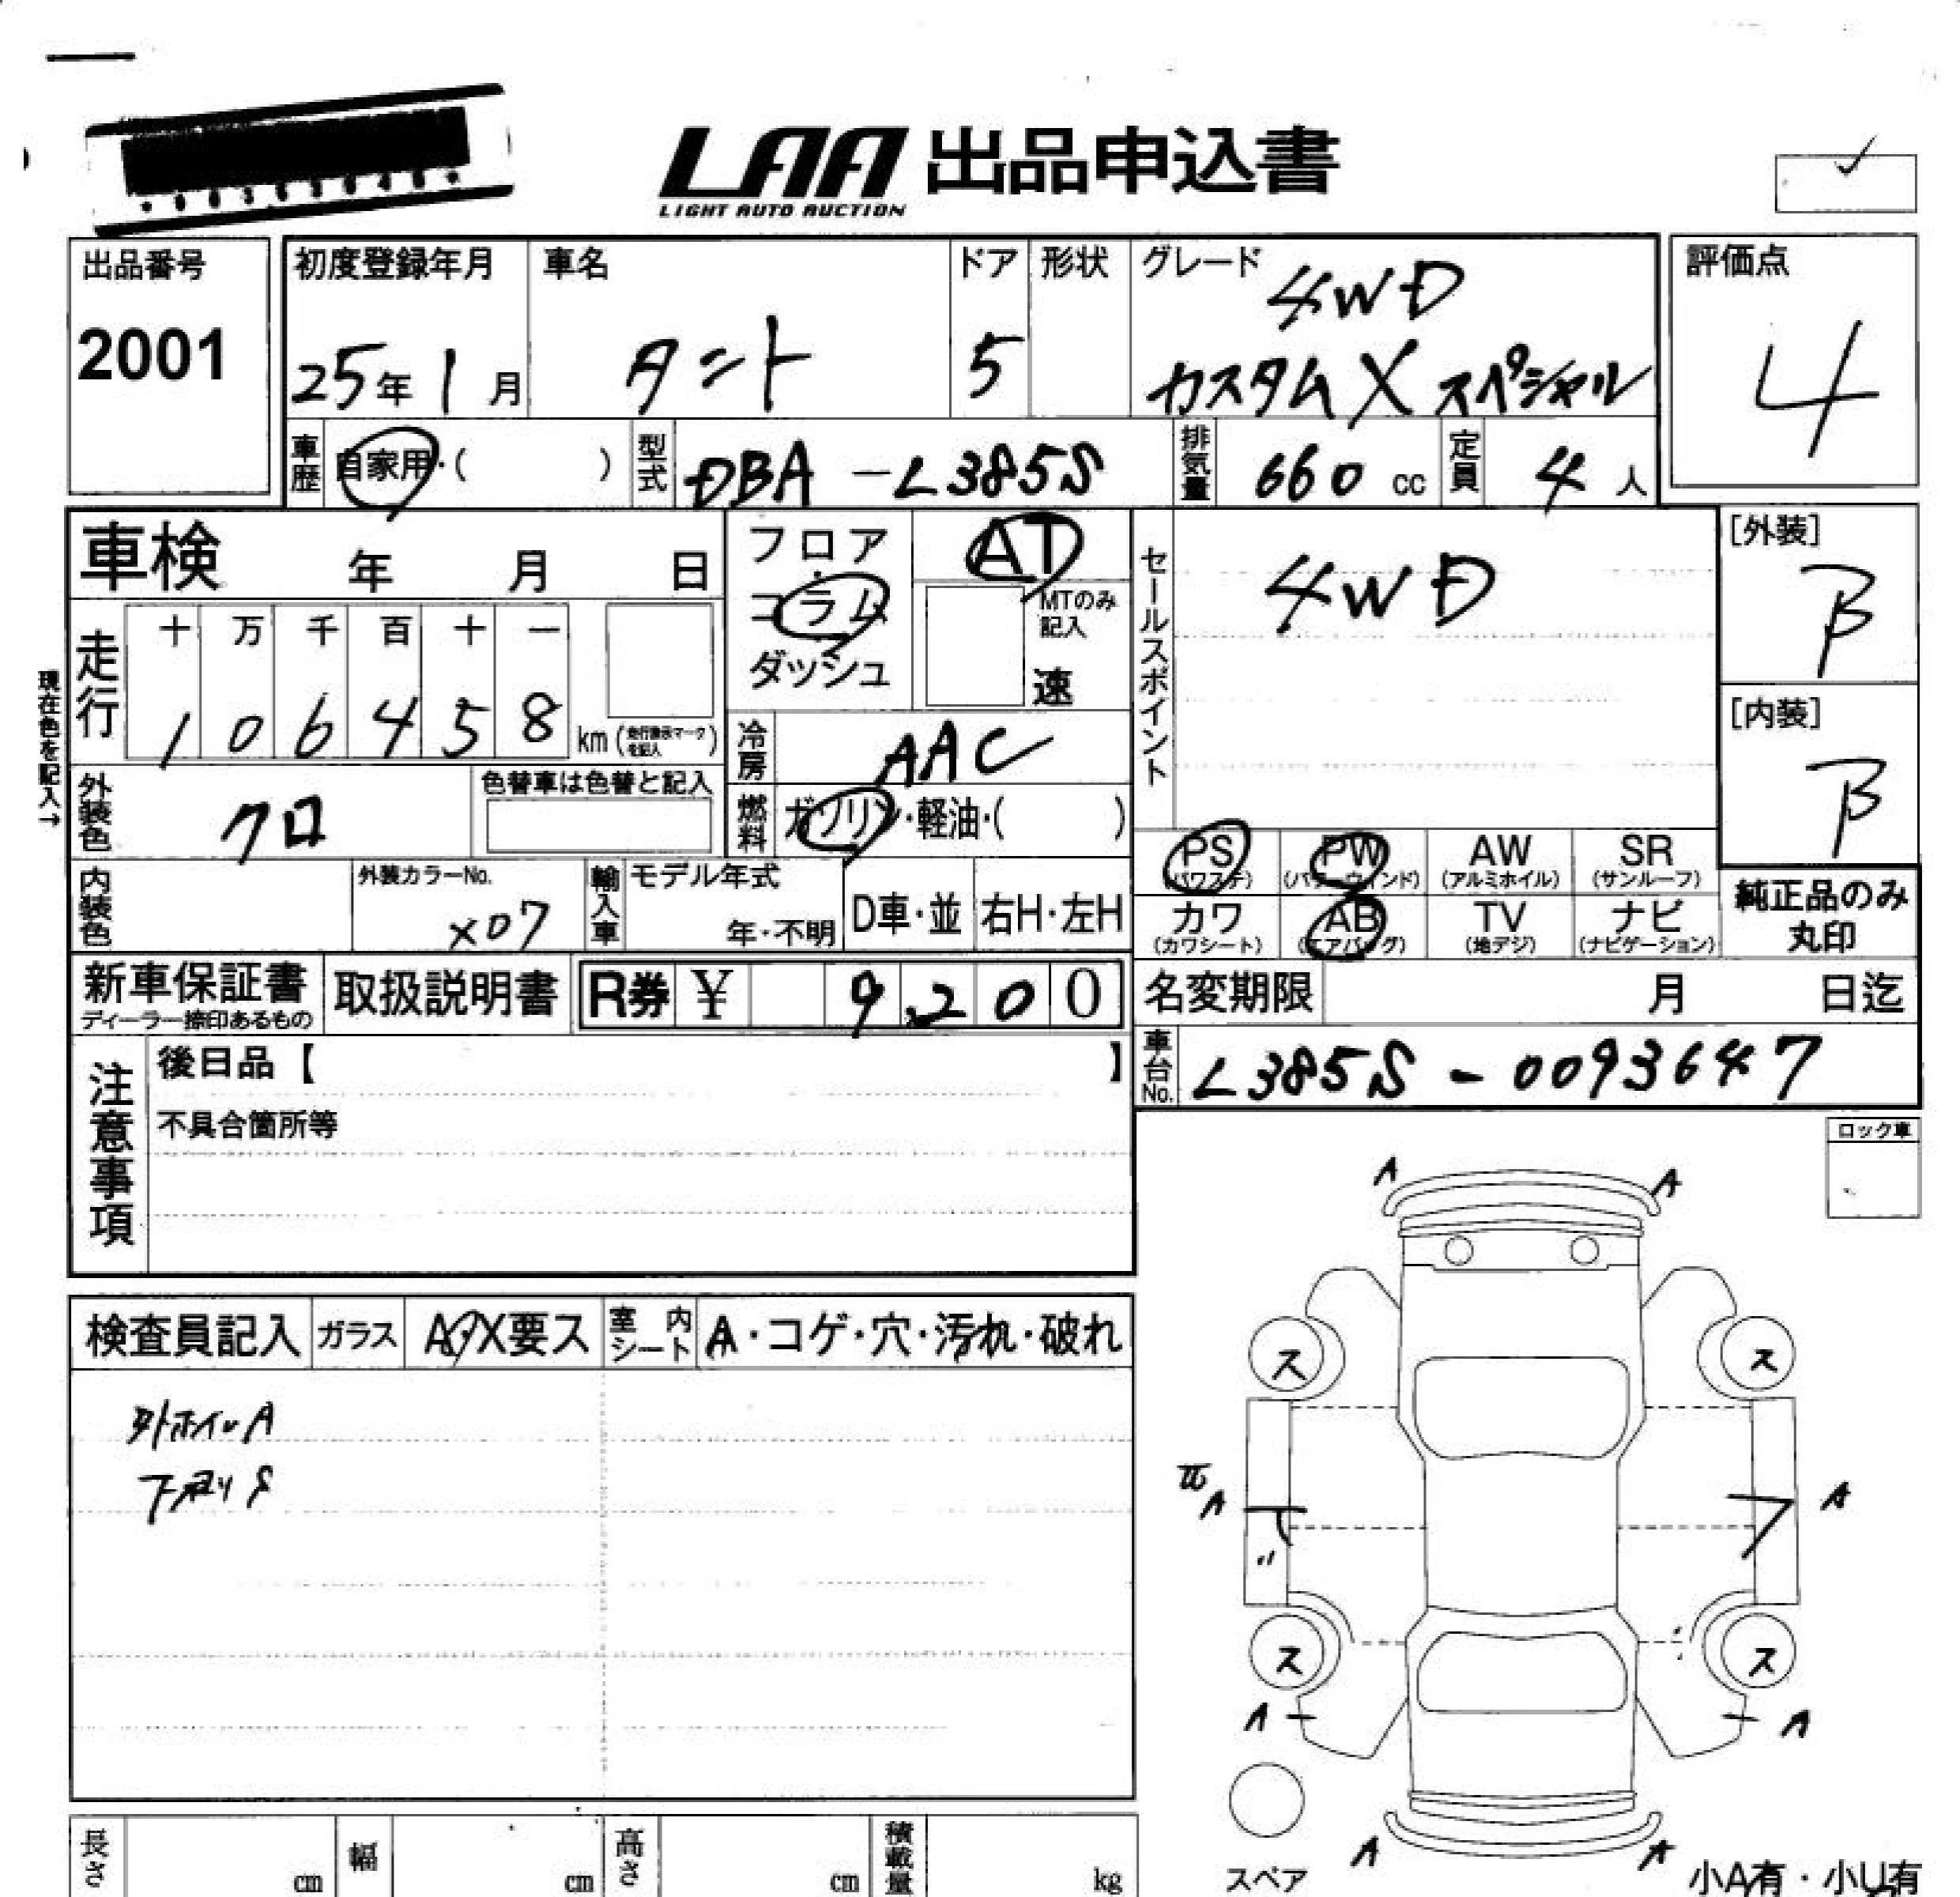 LAA 出品申込書
LIGHT AUTO AUCTION
出品番号
2001
初度登録年月
25年1月
車名
タント
ドア
5
形状
グレード
4WD
カスタムXスペシャル
評価点
4
車歴
自家用・( )
型式
DBA-L385S
排気量
660 cc
定員
4人
車検 年 月 日
フロア・コラム
ダッシュ
AT
MTのみ記入
速
セールスポイント
4WD
[外装]
B
[内装]
B
現在色を記入→
走行
十 万 千 百 十 一
1 0 6 4 5 8 km (走行表示マークを記入)
冷房
AAC
燃料
ガソリン・軽油・( )
外装色
クロ
色替車は色替と記入
内装色
外装カラーNo.
X07
輸入車
モデル年式
年・不明
D車・並
右H・左H
PS
(パワステ)
PW
(パワーウィンド)
AW
(アルミホイル)
SR
(サンルーフ)
カワ
(カワシート)
AB
(エアバッグ)
TV
(地デジ)
ナビ
(ナビゲーション)
純正品のみ
丸印
新車保証書
ディーラー捺印あるもの
取扱説明書
R券 ¥ 9,200
名変期限 月 日迄
車台No.
L385S-0093647
注意事項
後日品【 】
不具合箇所等
ロック車
検査員記入
ガラス
A・X要ス
室内シート
A・コゲ・穴・汚れ・破れ
外ホイルA
下廻りS
A
A
ス
ス
A
A
ス
ス
A
A
A
A
スペア
小A有・小U有
長さ
cm
幅
cm
高さ
cm
積載量
kg